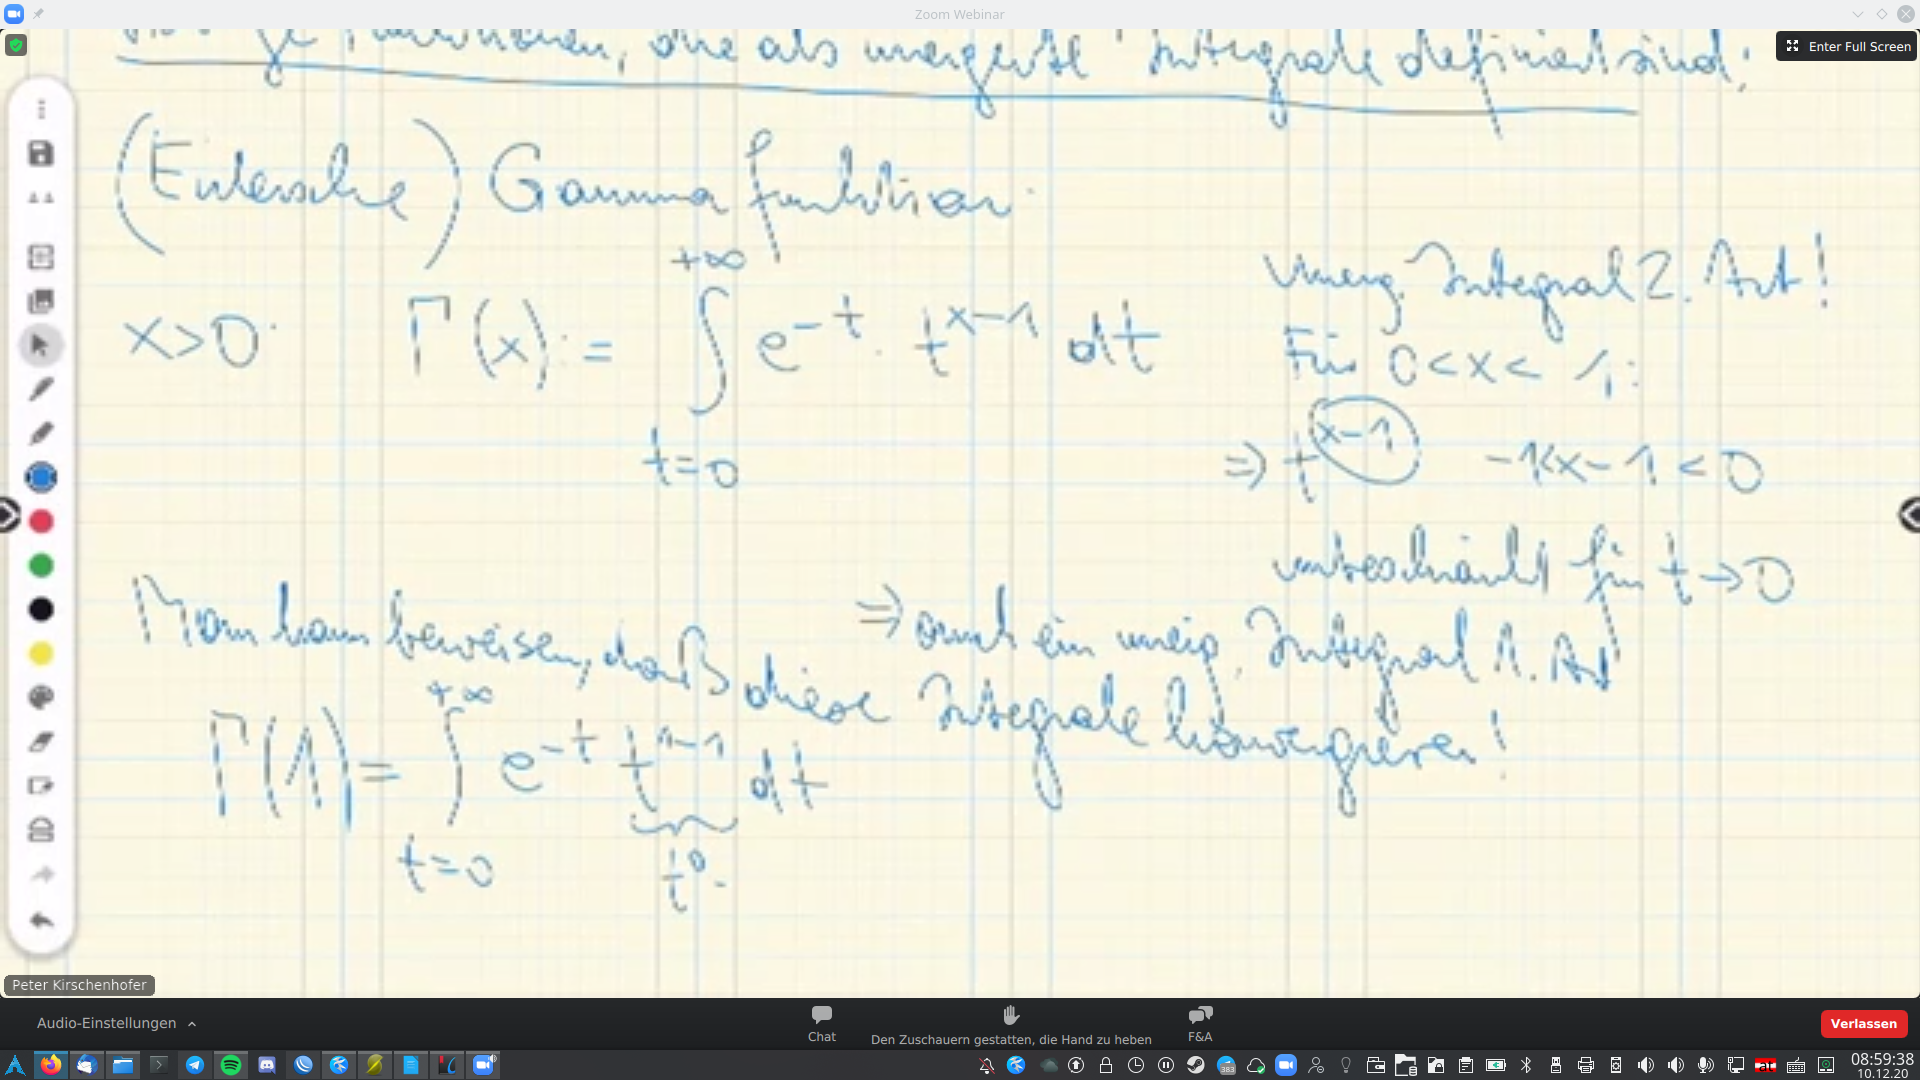 Zoom Webinar
Enter Full Screen
die als uneigentl. Integrale definiert sind:
(Eulersche) Gammafunktion:
x>0: Γ(x) := ∫ e^{-t} · t^{x-1} dt
+∞
t=0
Uneig. Integral 2. Art!
Für 0<x<1:
⇒ t^{x-1} -1<x-1<0
unbeschränkt für t→0
⇒ auch ein uneig. Integral 1. Art
Man kann beweisen, daß diese Integrale konvergieren!
+∞
Γ(1) = ∫ e^{-t} t^{1-1} dt
t=0
t^0
Peter Kirschenhofer
Audio-Einstellungen
Chat
Den Zuschauern gestatten, die Hand zu heben
F&A
Verlassen
383
08:59:38
10.12.20